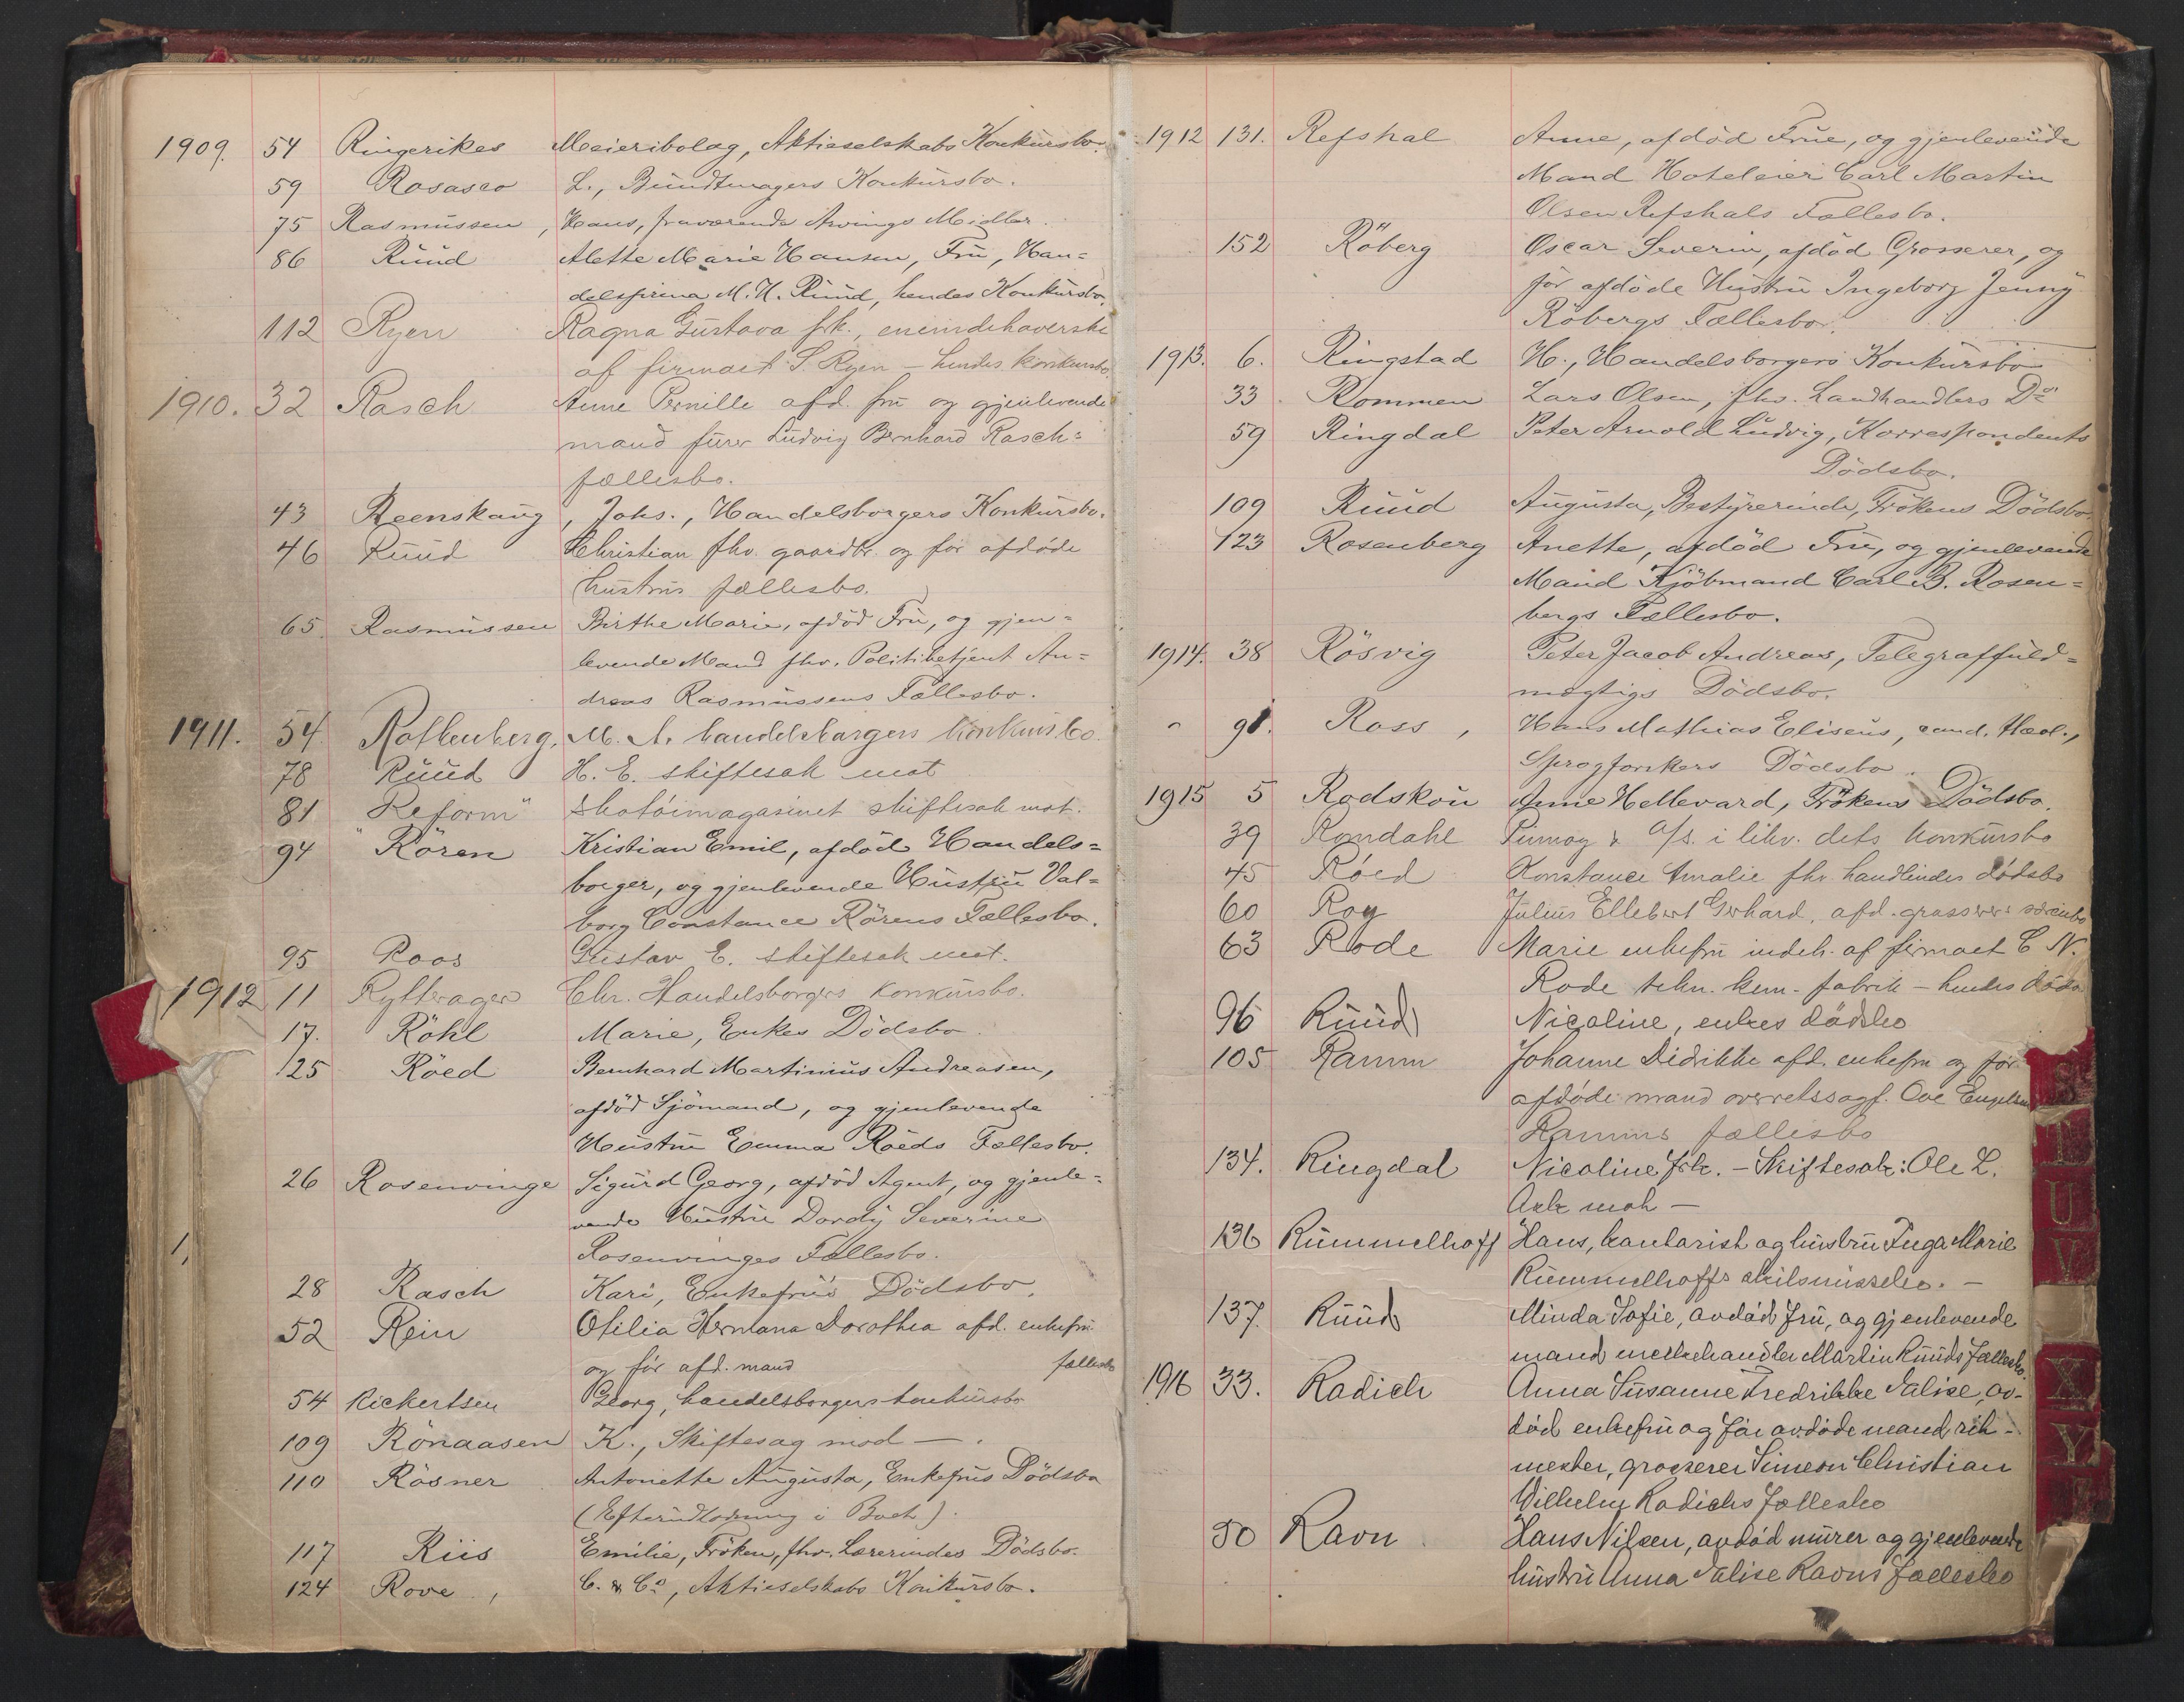 1909. 54 Ringerikes Meieribolag, Aktieselskabs Konkursbo.
59 Rosasco L., Bundtmagers Konkursbo.
75 Rasmussen, Hans, fraværende Arvings Midler.
86 Ruud Alette Marie Hansen, Fru, Han=
delsfirma M. H. Ruud, hendes Konkursbo.
112 Ryen Ragna Gustava frk., eneindehaverske
af firmaet S. Ryen – hendes konkursbo.
1910. 32 Rasch Anne Pernille afd. fru og gjenlevende
mand furer Ludvig Bernhard Rasch=
fællesbo.
43 Reenskaug, Johs., Handelsborgers Konkursbo.
46 Ruud Christian fhv. gaardbr. og før afdøde
hustrus fællesbo.
65. Rasmussen Birthe Marie, afdöd Fru, og gjen=
levende Mand fhv. Politibetjent An=
dreas Rasmussens Fællesbo.
1911. 54 Rottenberg, M. A. handelsborgers konkursbo.
78 Ruud H. E. skiftesak mot
81 "Reform" Skotøimagasinet skiftesak mot.
94 Rören Kristian Emil, afdöd Handels=
borger, og gjenlevende Hustru Val=
borg Constance Rörens Fællesbo.
95 Roos Gustav E. skiftesak mot.
1912 11 Rytterager Chr. Handelsborgers konkursbo.
17. Röhl Marie, Enkes Dödsbo.
25 Röed Bernhard Martinius Andreasen,
afdöd Sjömand, og gjenlevende
Hustru Emma Röeds Fællesbo.
26 Rosenvinge Sigurd Georg, afdöd Agent, og gjenle=
vende Hustru Dordy Severine
Rosenvinges Fællesbo.
28 Rasch Kari, Enkefrus Dödsbo.
52 Rein Otilia Hermana Dorothea afd. enkefru
og før afd. mand fællesbo
54 Rickertsen Georg, handelsborgers konkursbo
109 Rönaasen K., Skiftesag mod — .
110 Rösner Antonette Augusta, Enkefrus Dödsbo
(Efterudlodning i Boet).
117 Riis Emilie, Fröken, fhv. Lærerindes Dödsbo.
124 Rove, C. & Co, Aktieselskabs Konkursbo.
1912 131. Refshal Anne, afdöd Frue, og gjenlevende
Mand Hoteleier Carl Martin
Olsen Refshals Fællesbo.
152 Röberg Oscar Severin, afdöd Grosserer, og
för afdöde Hustru Ingeborg Jenny
Röbergs Fællesbo.
1913. 6. Ringstad H., Handelsborgers Konkursbo
33. Rommen Lars Olsen, fhv. Landhandlers Do
59 Ringdal Peter Arnold Ludvig, Korrespondents
Dödsbo.
109 Ruud Augusta, Bestyrerinde, Frökens Dödsbo.
123 Rosenberg Anette, afdöd Fru, og gjenlevende
Mand Kjöbmand Carl B. Rosen=
bergs Fællesbo.
1914. 38 Rösvig Peter Jacob Andreas, Telegraffuld=
mægtigs Dödsbo.
" 91. Ross, Hans Mathias Eliseus, cand. theol.,
Sprogforskers Dödsbo.
1915 5 Rodskou Anne Hellevard, Frökens Dödsbo.
39 Romdahl & A/S. i likv. dets konkursbo
45 Røed Konstance Amalie fhv. handlendes dødsbo
60 Roy Julius Ellebert Gerhard, afd. grosserers
63 Rode Marie enkefru indeh. af firmaet C. N.
Rode tekn. kem. fabrik – hendes
96 Ruud Nicoline, enkes dödsbo
105 Ramm Johanne Didrikke afd. enkefru og før
afdøde mand overretssagf. Ove Engelsen
Ramms fællesbo
134. Ringdal Nicoline frk. – Skiftesak: Ole L.
Aak mot —
136 Rummelhoff Hans, kontorist og hustru Inga Marie
Rummelhoffs skilsmissebo. —
137. Ruud Minda Sofie, avdöd fru, og gjenlevende
mand melkehandler Martin Ruuds Fællesbo.
1916 33. Radich Anna Susanne Fredrikke Valise, av-
död enkefru og før avdøde mand rit-
mester, grosserer Simeon Christian
Wilhelm Radichs Fællesbo
50 Ravn Hans Nilsen, avdød murer og gjenlevende
hustru Anna Valise Ravns Fællesbo
S
T
U
V
X
Y